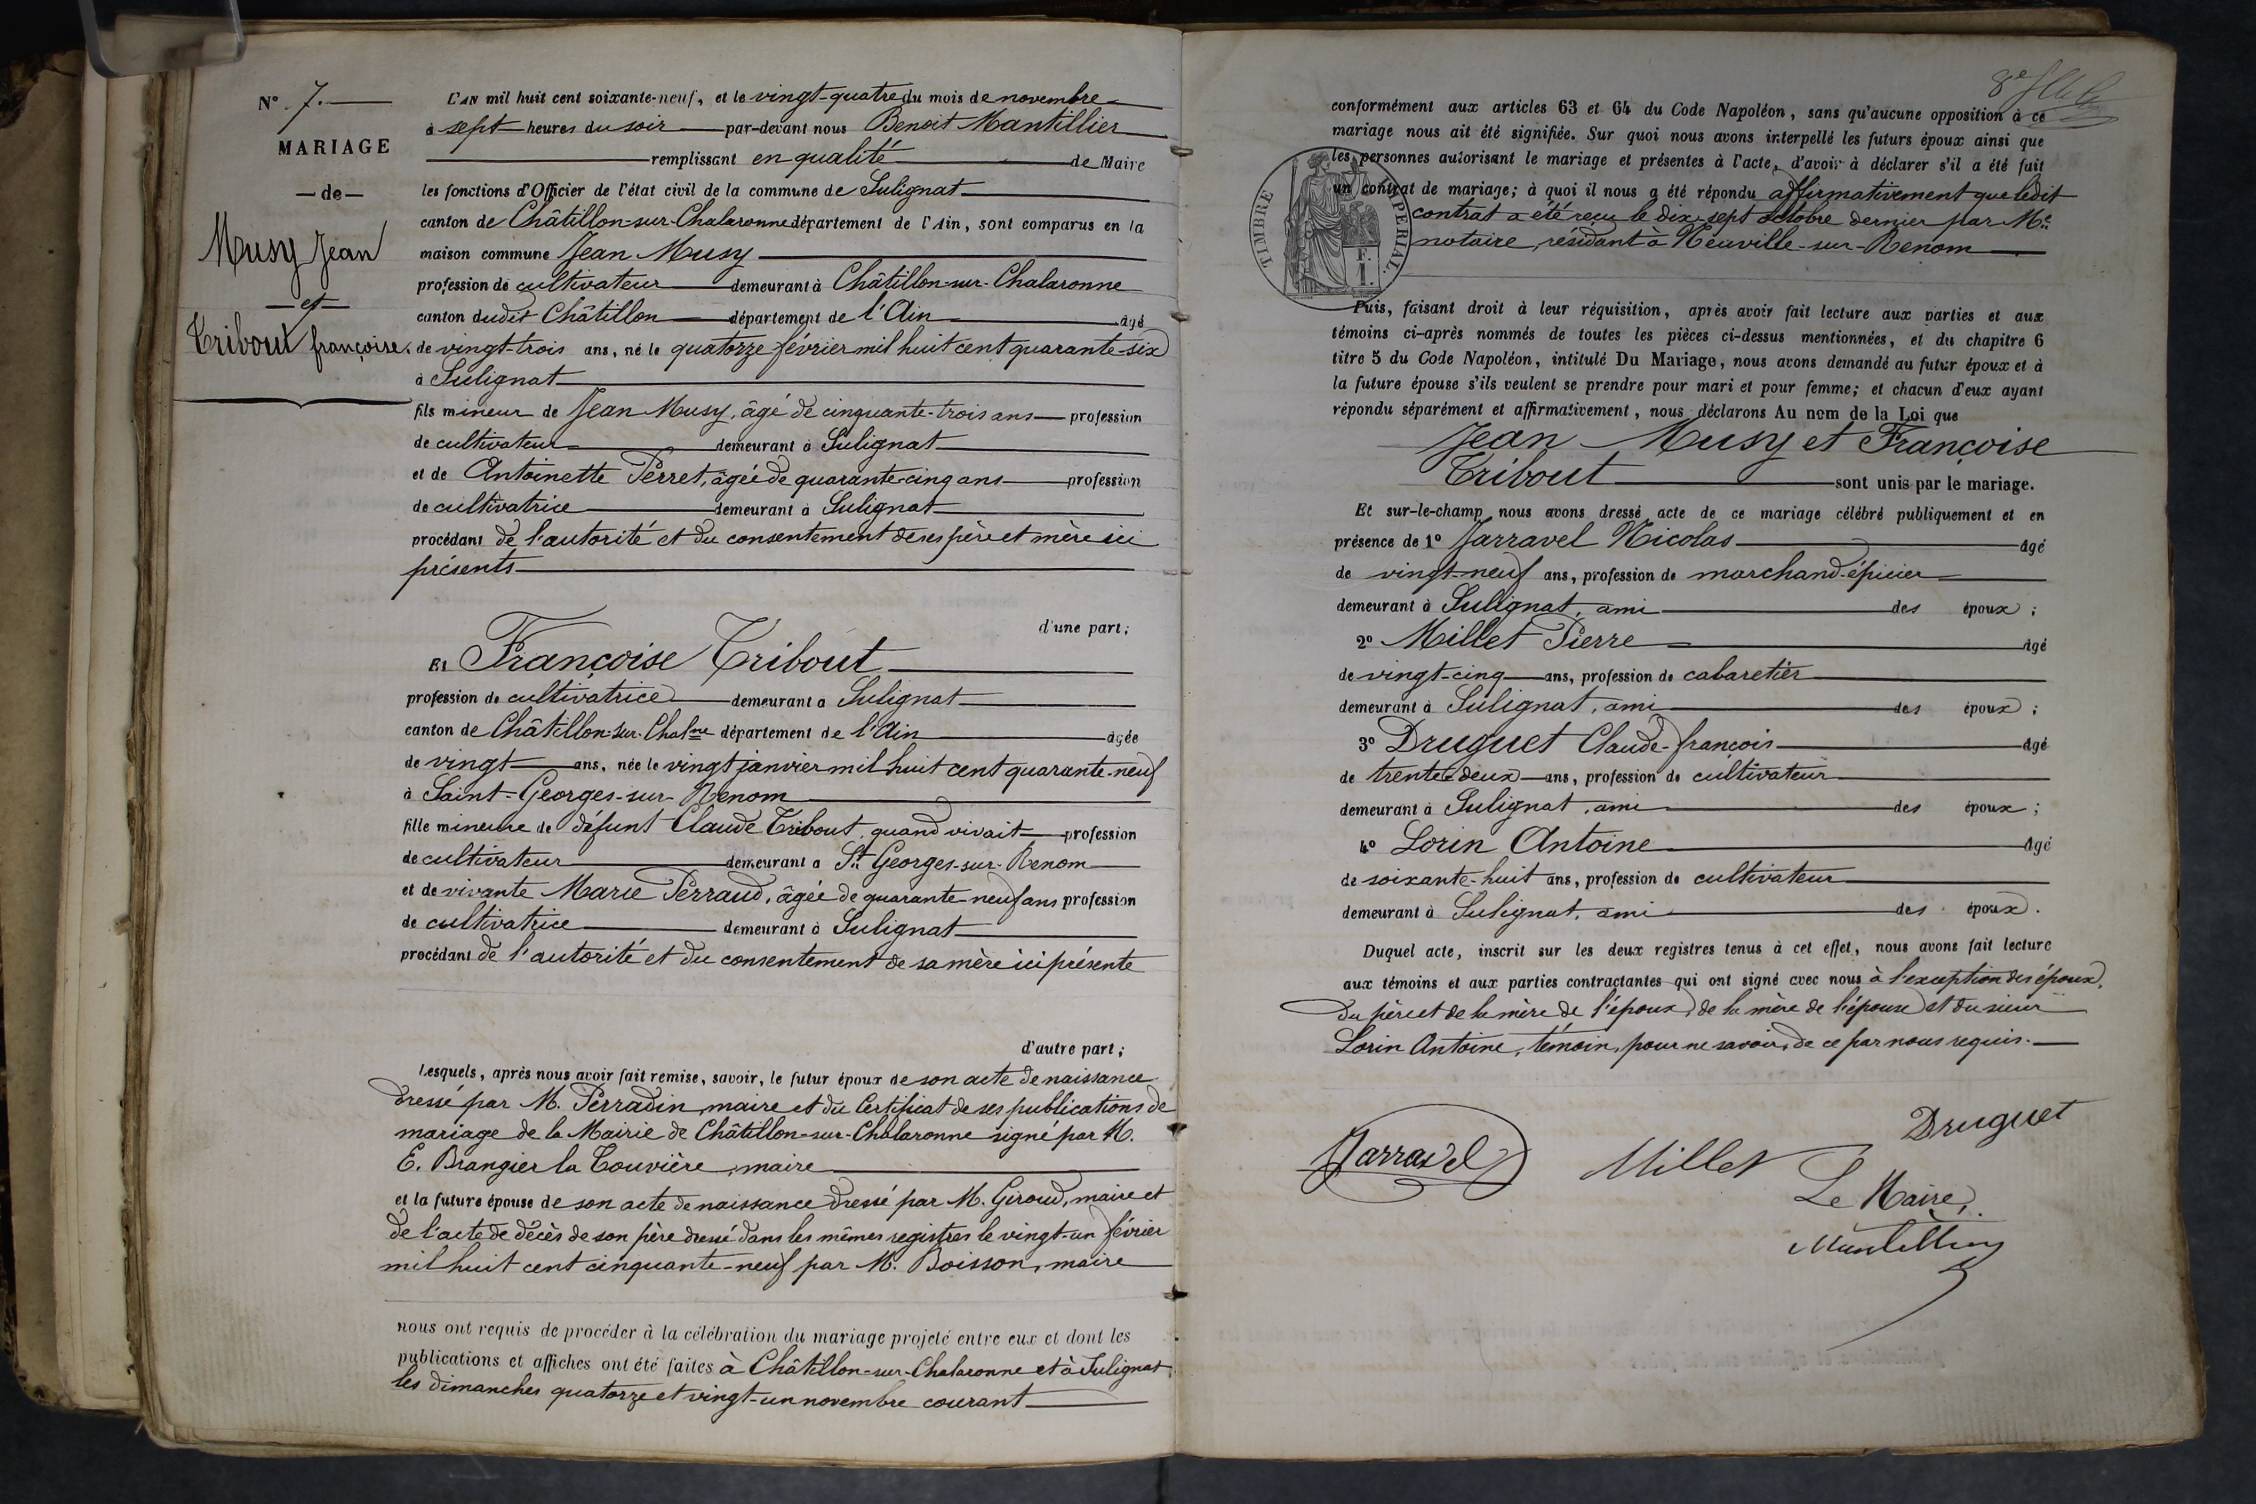 N° 7.
MARIAGE
— de —
Musy Jean
— et —
Tribout françoise.
L'AN mil huit cent soixante-neuf, et le vingt-quatre du mois de novembre
à sept heures du soir par-devant nous Benoit Mantillier
remplissant en qualité de Maire
les fonctions d'Officier de l'état civil de la commune de Sulignat
canton de Châtillon-sur-Chalaronne département de l'Ain, sont comparus en la
maison commune Jean Musy
profession de cultivateur demeurant à Châtillon-sur-Chalaronne
canton dudit Châtillon département de l'Ain âgé
de vingt-trois ans, né le quatorze février mil huit cent quarante-six
à Sulignat
fils mineur de Jean Musy, âgé de cinquante-trois ans profession
de cultivateur demeurant à Sulignat
et de Antoinette Perret, âgée de quarante-cinq ans profession
de cultivatrice demeurant à Sulignat
procédant de l'autorité et du consentement de ses père et mère ici
présents
d'une part;
Et Françoise Tribout
profession de cultivatrice demeurant à Sulignat
canton de Châtillon-sur-Chalne département de l'Ain âgée
de vingt ans, née le vingt janvier mil huit cent quarante-neuf
à Saint-Georges-sur-Renom
fille mineure de défunt Claude Tribout, quand vivait profession
de cultivateur demeurant à St Georges-sur-Renom
et de vivante Marie Perraud, âgée de quarante-neuf ans profession
de cultivatrice demeurant à Sulignat
procédant de l'autorité et du consentement de sa mère ici présente
d'autre part;
Lesquels, après nous avoir fait remise, savoir, le futur époux de son acte de naissance
dressé par M. Perradin, maire et du Certificat de ses publications de
mariage de la Mairie de Châtillon-sur-Chalaronne signé par M.
E. Brangier la Touvière, maire
et la future épouse de son acte de naissance dressé par M. Giroud, maire et
de l'acte de décès de son père dressé dans les mêmes registres le vingt-un février
mil huit cent cinquante-neuf par M. Boisson, maire
nous ont requis de procéder à la célébration du mariage projeté entre eux et dont les
publications et affiches ont été faites à Châtillon-sur-Chalaronne et à Sulignat,
les dimanches quatorze et vingt-un novembre courant
8e
conformément aux articles 63 et 64 du Code Napoléon, sans qu'aucune opposition à ce
mariage nous ait été signifiée. Sur quoi nous avons interpellé les futurs époux ainsi que
les personnes autorisant le mariage et présentes à l'acte, d'avoir à déclarer s'il a été fait
un contrat de mariage; à quoi il nous a été répondu affirmativement que ledit
contrat a été reçu le dix-sept octobre dernier par Me
notaire, résidant à Neuville-sur-Renom
TIMBRE IMPERIAL.
F.
1
Puis, faisant droit à leur réquisition, après avoir fait lecture aux parties et aux
témoins ci-après nommés de toutes les pièces ci-dessus mentionnées, et du chapitre 6
titre 5 du Code Napoléon, intitulé Du Mariage, nous avons demandé au futur époux et à
la future épouse s'ils veulent se prendre pour mari et pour femme; et chacun d'eux ayant
répondu séparément et affirmativement, nous déclarons Au nom de la Loi que
Jean Musy et Françoise
Tribout sont unis par le mariage.
Et sur-le-champ nous avons dressé acte de ce mariage célébré publiquement et en
présence de 1° Jarravel Nicolas âgé
de vingt-neuf ans, profession de marchand-épicier
demeurant à Sulignat, ami des époux;
2° Millet Pierre âgé
de vingt-cinq ans, profession de cabaretier
demeurant à Sulignat, ami des époux;
3° Druguet Claude-françois âgé
de trente-deux ans, profession de cultivateur
demeurant à Sulignat, ami des époux;
4° Lorin Antoine âgé
de soixante-huit ans, profession de cultivateur
demeurant à Sulignat, ami des époux.
Duquel acte, inscrit sur les deux registres tenus à cet effet, nous avons fait lecture
aux témoins et aux parties contractantes qui ont signé avec nous à l'exception des époux,
du père et de la mère de l'époux, de la mère de l'épouse et du sieur
Lorin Antoine, témoin, pour ne savoir, de ce par nous requis.
Jarravel Millet Druguet
Le Maire,
Mantillier